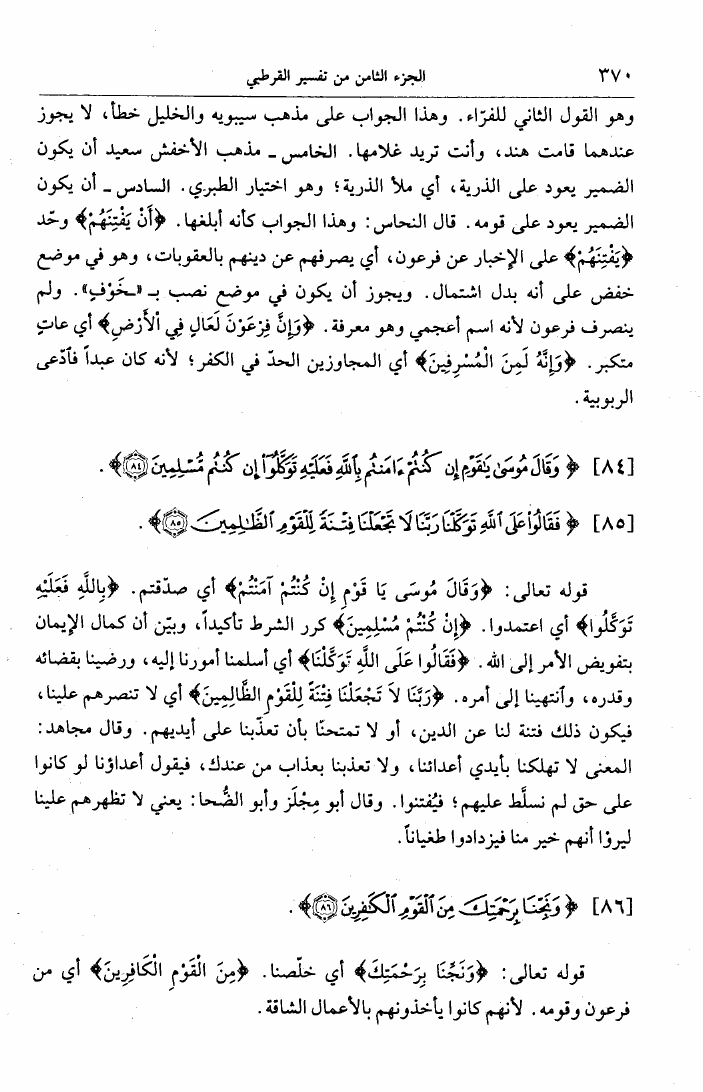 ٣٧٠ الجزء الثامن من تفسير القرطبي
وهو القول الثاني للفرّاء. وهذا الجواب على مذهب سيبويه والخليل خطأ، لا يجوز
عندهما قامت هند، وأنت تريد غلامها. الخامس ـ مذهب الأخفش سعيد أن يكون
الضمير يعود على الذرية، أي ملأ الذرية؛ وهو اختيار الطبري. السادس ـ أن يكون
الضمير يعود على قومه. قال النحاس: وهذا الجواب كأنه أبلغها. ﴿أَنْ يَفْتِنَهُمْ﴾ وحّد
﴿يَفْتِنَهُمْ﴾ على الإخبار عن فرعون، أي يصرفهم عن دينهم بالعقوبات، وهو في موضع
خفض على أنه بدل اشتمال. ويجوز أن يكون في موضع نصب بـ «ـخَوْفٍ». ولم
ينصرف فرعون لأنه اسم أعجمي وهو معرفة. ﴿وَإِنَّ فِرْعَوْنَ لَعَالٍ فِي ٱلْأَرْضِ﴾ أي عاتٍ
متكبر. ﴿وَإِنَّهُ لَمِنَ الْمُسْرِفِينَ﴾ أي المجاوزين الحدّ في الكفر؛ لأنه كان عبداً فٱدّعى
الربوبية.
[٨٤] ﴿ وَقَالَ مُوسَىٰ يَٰقَوْمِ إِن كُنتُمْ ءَامَنتُم بِٱللَّهِ فَعَلَيْهِ تَوَكَّلُوٓا۟ إِن كُنتُم مُّسْلِمِينَ ٨٤﴾.
[٨٥] ﴿ فَقَالُوا۟ عَلَى ٱللَّهِ تَوَكَّلْنَا رَبَّنَا لَا تَجْعَلْنَا فِتْنَةً لِّلْقَوْمِ ٱلظَّٰلِمِينَ ٨٥﴾.
قوله تعالى: ﴿وَقَالَ مُوسَى يَا قَوْمِ إِنْ كُنْتُمْ آمَنْتُمْ﴾ أي صدّقتم. ﴿بِاللَّهِ فَعَلَيْهِ
تَوَكَّلُوا﴾ أي اعتمدوا. ﴿إِنْ كُنْتُمْ مُسْلِمِينَ﴾ كرر الشرط تأكيداً، وبيّن أن كمال الإيمان
بتفويض الأمر إلى الله. ﴿فَقَالُوا عَلَى اللَّهِ تَوَكَّلْنَا﴾ أي أسلمنا أمورنا إليه، ورضينا بقضائه
وقدره، وٱنتهينا إلى أمره. ﴿رَبَّنَا لاَ تَجْعَلْنَا فِتْنَةً لِلْقَوْمِ الظَّالِمِينَ﴾ أي لا تنصرهم علينا،
فيكون ذلك فتنة لنا عن الدين، أو لا تمتحنّا بأن تعذّبنا على أيديهم. وقال مجاهد:
المعنى لا تهلكنا بأيدي أعدائنا، ولا تعذبنا بعذاب من عندك، فيقول أعداؤنا لو كانوا
على حق لم نسلَّط عليهم؛ فيُفتنوا. وقال أبو مِجْلَز وأبو الضُّحا: يعني لا تظهرهم علينا
ليروْا أنهم خير منا فيزدادوا طغياناً.
[٨٦] ﴿ وَنَجِّنَا بِرَحْمَتِكَ مِنَ ٱلْقَوْمِ ٱلْكَٰفِرِينَ ٨٦﴾.
قوله تعالى: ﴿وَنَجِّنَا بِرَحْمَتِكَ﴾ أي خلّصنا. ﴿مِنَ الْقَوْمِ الْكَافِرِينَ﴾ أي من
فرعون وقومه. لأنهم كانوا يأخذونهم بالأعمال الشاقة.